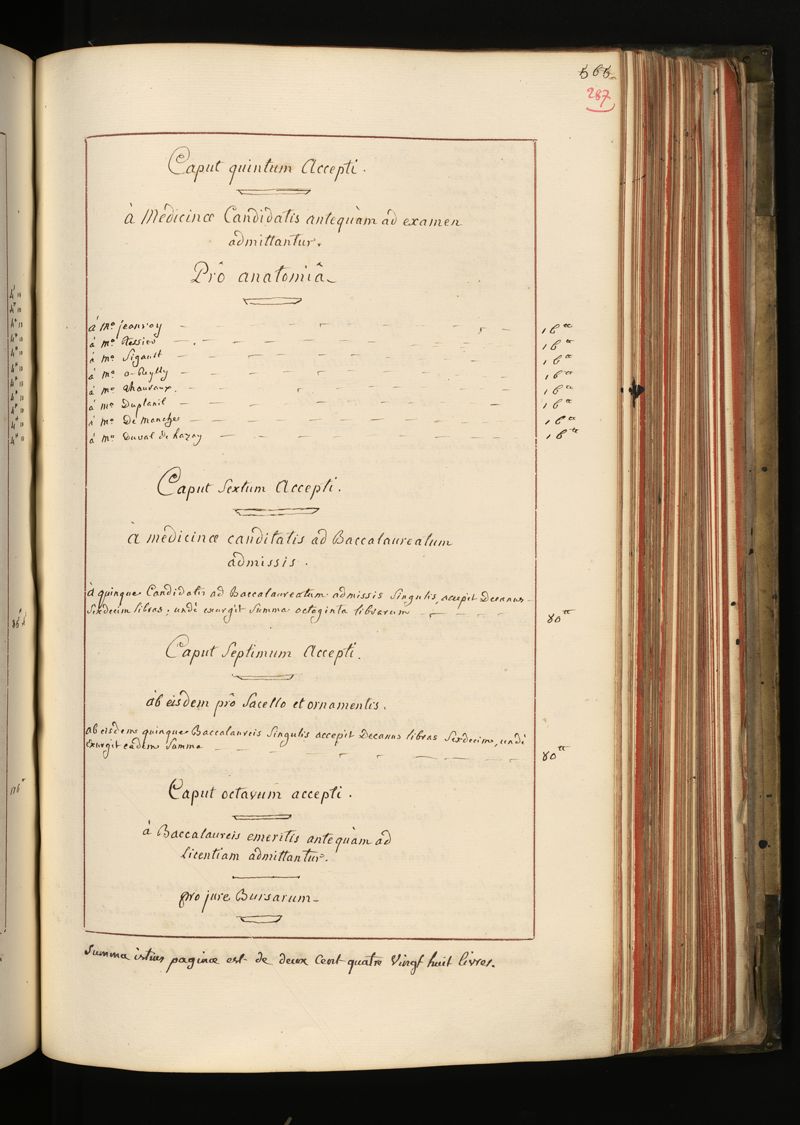 565
287
Caput quintum Accepti.
à Medicinæ Candidatis antequàm ad examen
admittantur.
Prô anatomiâ
à Mo jeanroy 16tt
à mo Tessier 16tt
à mo Sigault 16tt
à mo o-Reylly 16tt
à mo Thauraux. 16tt
à Mo Duplanil 16tt
à Mo De Manches 16tt
à Mo Duval de hazay 16tt
Caput Sextum Accepti.
à medicinæ canditatis ad Baccalaureatum
admissis.
à quinque Candidatis ad Baccalaureatum admissis Singulis, accepit Decanus
Sexdecim libras, undè exurgit Summa octoginta librarum 80tt
Caput Septimum Accepti.
àb eisdem prô Sacello et ornamentis.
ab eisdem quinque Baccalaureis Singulis accepit Decanus libras Sexdecim, undè
exurgit eadem Summa 80tt
Caput octavum accepti.
à Baccalaureis emeritis antequàm ad
licentiam admittantur.
pro jure Bursarum
Summa istius paginæ est de deux Cent quatre Vingt huit livres.